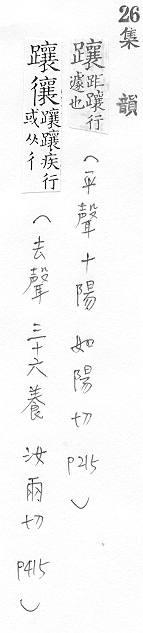 26
集韻
躟 距躟行遽也 (平聲十陽 如陽切 P215)
躟儴 躟躟疾行或从彳 (去聲 三十六養 汝兩切 P415)